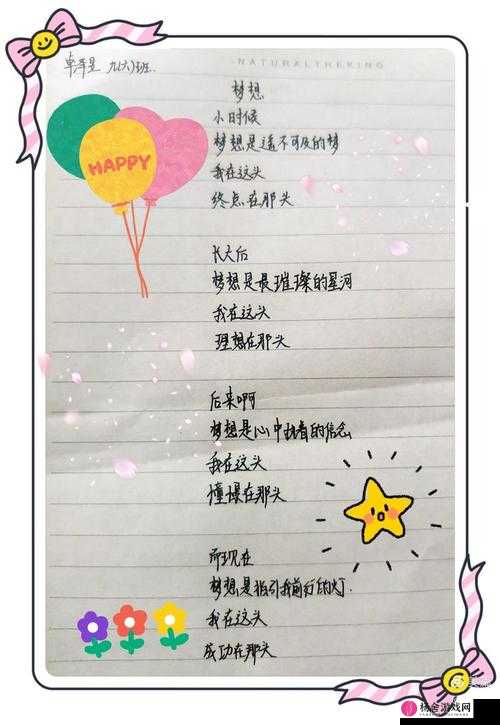 NATURALTHEKING
卓泽昱 九(六)班.
HAPPY
梦想
小时候
梦想是遥不可及的梦
我在这头
终点在那头
长大后
梦想是最璀璨的星河
我在这头
理想在那头
后来啊
梦想是心中执着的信念
我在这头
憧憬在那头
而现在
梦想是指引我前行的灯.
我在这头
成功在那头
杨金游戏网